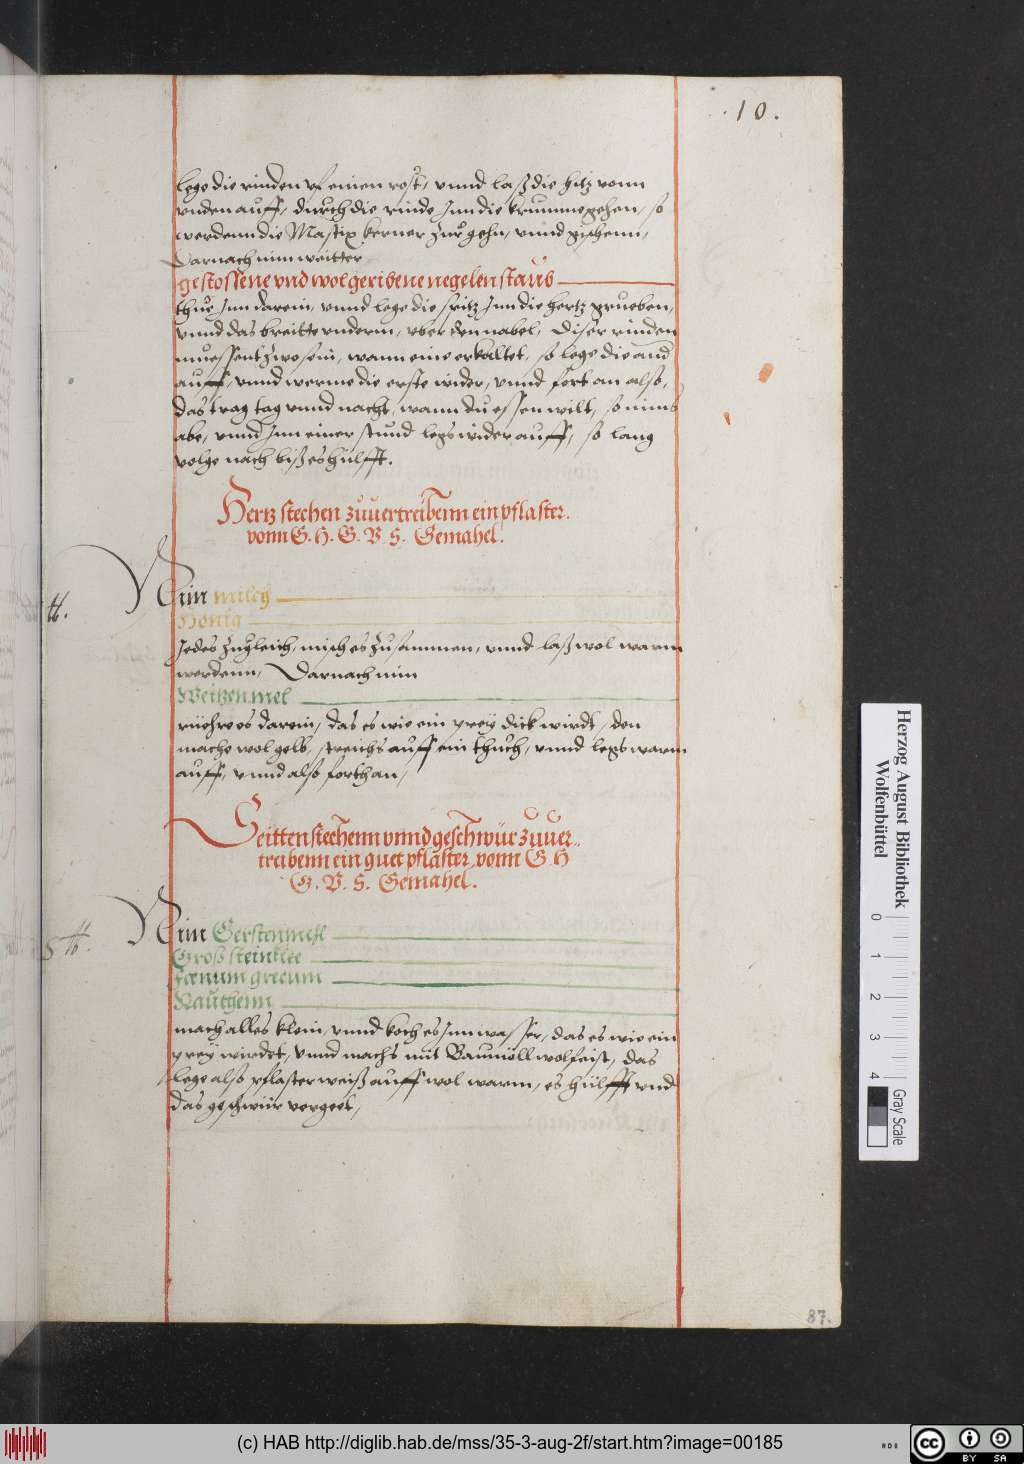 .10.
lege die rinden vf einen rost, vnnd laß die hitz vonn
vnden auff, durch die rinde Jnn die krumme gehen, so
werdenn die Mastix kerner zur gehn, vnnd zischenn,
Darnach nim weitter
gestossene vnd wol geribene negelen staub
thue Jnn darein, vnnd lege die spitz Jnn die hertz grueben,
vnnd das breitte vnderm, vber den nabel, Diser rinden
muessent zwo sein, wann eine erkaltet, so lege die and
auff, vnnd werme die erste wider, vnnd fort an also,
das trag tag vnnd nacht, wann du essen wilt, so nims
abe, vnnd Jnn einer stund legs wider auff, so lang
volge nach biß es hülfft.
Hertz stechen zuuertreibenn ein pflaster.
vonn G. H. G. V. S. Gemahel.
Nim milch
Honig
Jedes zugleich, misch es zusammen, vnnd laß wol warm
werdenn, Darnach nim
Weitzen mel
rüehre es darein, das es wie ein prey dick wirdt, den
mache wol gelb, streichs auff ein thuch, vnnd legs warm
auff, vnnd also forthan,
Seitten stechenn vnnd geschwür zuuer-
treibenn ein guet pflaster, vonn G. H
G. V. S. Gemahel.
Nim Gerstenmehl
Groß steinklee
foenum grecum
Rauthenn
mach alles klein, vnnd koch es Jnn wasser, das es wie ein
prey wirdet, vnnd machs mit Baumöll wol feist, das
lege also pflaster weiß auff wol warm, es hülfft vnd
das geschwür vergeet,
87.
Herzog August Bibliothek
Wolfenbüttel
0 1 2 3 4
Gray Scale
(c) HAB http://diglib.hab.de/mss/35-3-aug-2f/start.htm?image=00185
cc BY SA